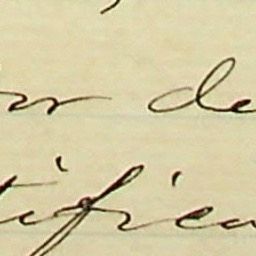 or de
tifica